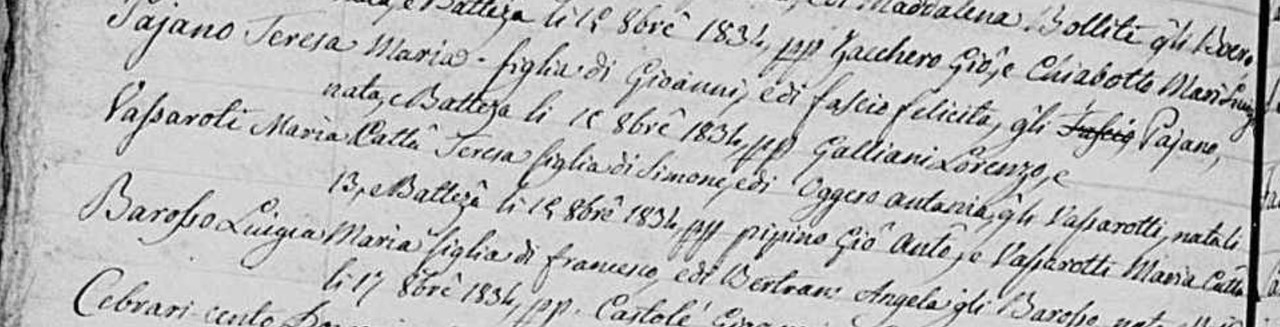 e Batteza li 15 8bre 1834, pp Gacchero Gio, e Chiabotto Mari Luigia
Pajano Teresa Maria figlia di Gioanni, e di fascio felicita, gli Fascio Pajano,
nata, e Batteza li 15 8bre 1834, pp Galliani Lorenzo, e
Vassaroti Maria Catta Teresa figlia di Simone, e di Oggero antania, gli Vassarotti, nata li
13, e Batteza li 15 8bre 1834 pp pipino Gio Ante, e Vassarotti Maria Catta
Barosso Luigia Maria figlia di francesco, e di Bertran Angela gli Barosso
li 17 8bre 1834, pp. Castolé
Cebrari cento